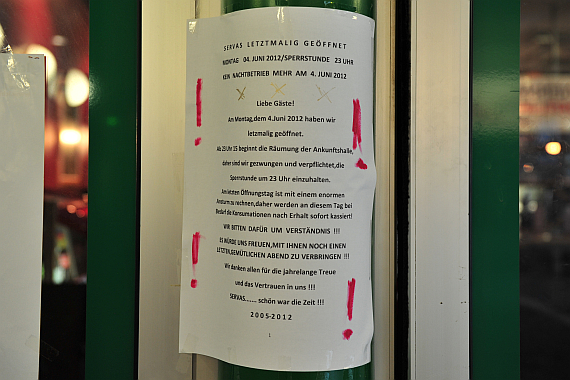 SERVAS LETZTMALIG GEÖFFNET
MONTAG 04. JUNI 2012/SPERRSTUNDE 23 UHR
KEIN NACHTBETRIEB MEHR AM 4. JUNI 2012
Liebe Gäste!
Am Montag,dem 4.Juni 2012 haben wir
letzmalig geöffnet.
Ab 23 Uhr 15 beginnt die Räumung der Ankunftshalle,
daher sind wir gezwungen und verpflichtet,die
Sperrstunde um 23 Uhr einzuhalten.
Am letzten Öffnungstag ist mit einem enormen
Ansturm zu rechnen,daher werden an diesem Tag bei
Bedarf die Konsumationen nach Erhalt sofort kassiert!
WIR BITTEN DAFÜR UM VERSTÄNDNIS !!!
ES WÜRDE UNS FREUEN,MIT IHNEN NOCH EINEN
LETZTEN,GEMÜTLICHEN ABEND ZU VERBRINGEN !!!
Wir danken allen für die jahrelange Treue
und das Vertrauen in uns !!!
SERVAS....... schön war die Zeit !!!
2005-2012
1